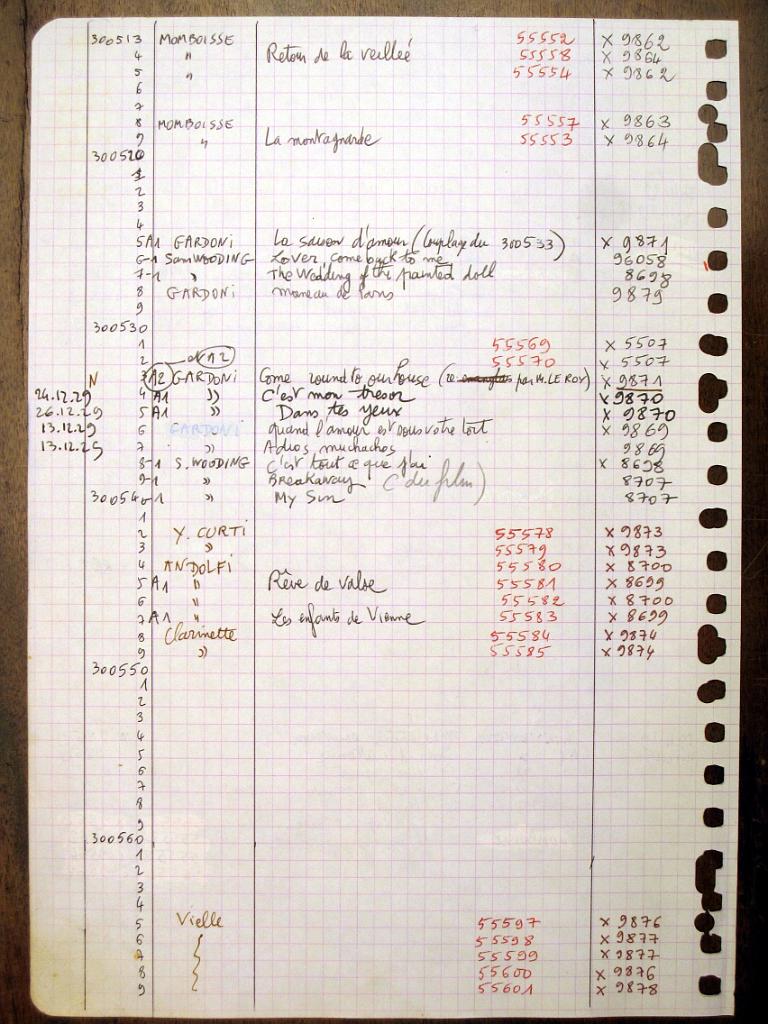 300513 MOMBOISSE 55552 X 9862
4 " Retour de la veilleé 55558 X 9864
5 " 55554 X 9862
6
7
8 MOMBOISSE 55557 X 9863
9 " La montagnarde 55553 X 9864
300520
1
2
3
4
5 A1 GARDONI La saison d'amour (Couplage du 300533) X 9871
6-1 Sam WOODING Lover, come back to me 96058
7-1 " The Wedding of the painted doll 8698
8 GARDONI de Paris 9879
9
300530
1 55569 X 5507
2 A2 55570 X 5507
N 3 A2 GARDONI Come round to our house ( par M. LE ROY) X 9871
24.12.29 4 A1 " C'est mon tresor X 9870
26.12.29 5 A1 " Dans tes yeux X 9870
13.12.29 6 GARDONI quand l'amour est sous votre toit X 9869
13.12.29 7 " Adios muchachos 9869
8-1 S. WOODING C'est tout ce que j'ai X 8698
9-1 " Breakaway (du film) 8707
300540-1 " My Sin 8707
1
2 Y. CURTI 55578 X 9873
3 " 55579 X 9873
4 ANDOLFI 55580 X 8700
5 A1 " Rêve de valse 55581 X 8699
6 " 55582 X 8700
7 A1 " Les enfants de Vienne 55583 X 8699
8 Clarinette 55584 X 9874
9 " 55585 X 9874
300550
1
2
3
4
5
6
7
8
9
300560
1
2
3
4
5 Vielle 55597 X 9876
6 55598 X 9877
7 55599 X 9877
8 55600 X 9876
9 55601 X 9878